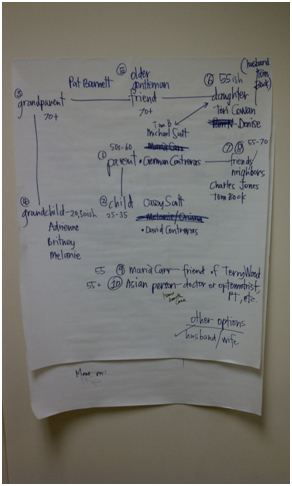 Pat Barnett
⑤ older
gentleman
friend
70+
⑥ 55ish
daughter
Tori Cowan
Denise
(husband
Tom
Book)
③
grandparent
70+
Tom B
Michael Scott
Maria Carr
50s-60
① parent • German Contreras
⑦ ⑧ 55-70
friends/
neighbors
Charles Jones
Tom Book
④
grandchild - 20, Irish
Adrienne
Britney
Melanie
② child
25-35
Casey Scott
• David Contreras
55 ⑨ Maria Carr - friend of Terry Wood
55+ ⑩ Asian person - doctor or optometrist,
PT, etc.
other options
husband/wife